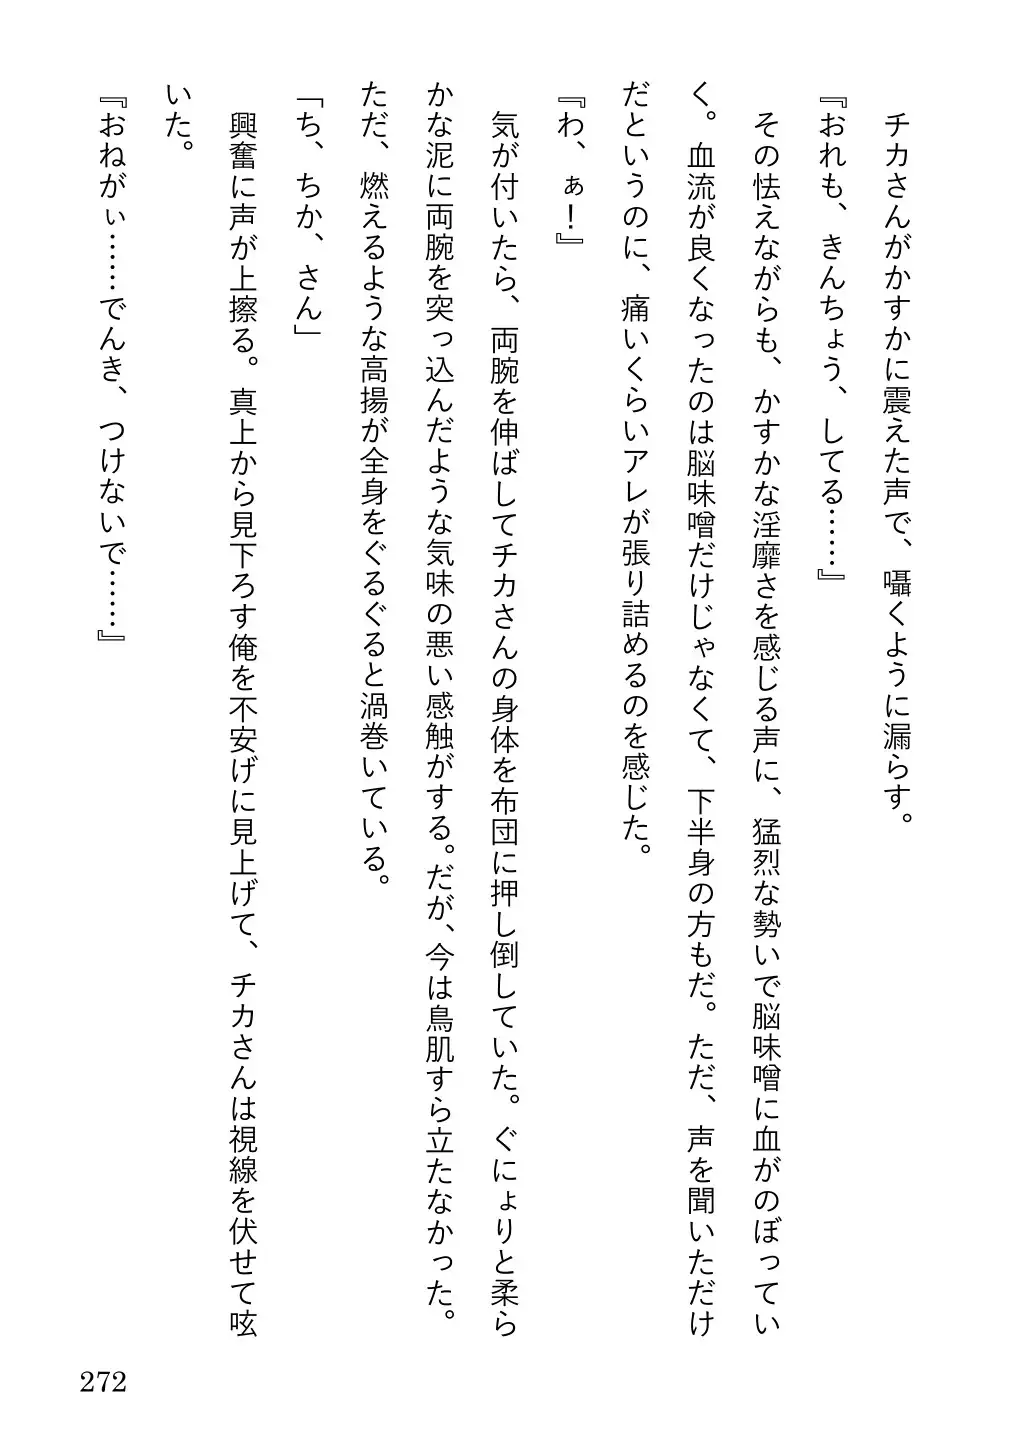 チカさんがかすかに震えた声で、囁くように漏らす。
『おれも、きんちょう、してる……』
その怯えながらも、かすかな淫靡さを感じる声に、猛烈な勢いで脳味噌に血がのぼってい
く。血流が良くなったのは脳味噌だけじゃなくて、下半身の方もだ。ただ、声を聞いただけ
だというのに、痛いくらいアレが張り詰めるのを感じた。
『わ、ぁ！』
気が付いたら、両腕を伸ばしてチカさんの身体を布団に押し倒していた。ぐにょりと柔ら
かな泥に両腕を突っ込んだような気味の悪い感触がする。だが、今は鳥肌すら立たなかった。
ただ、燃えるような高揚が全身をぐるぐると渦巻いている。
「ち、ちか、さん」
興奮に声が上擦る。真上から見下ろす俺を不安げに見上げて、チカさんは視線を伏せて呟
いた。
『おねがぃ……でんき、つけないで……』
272